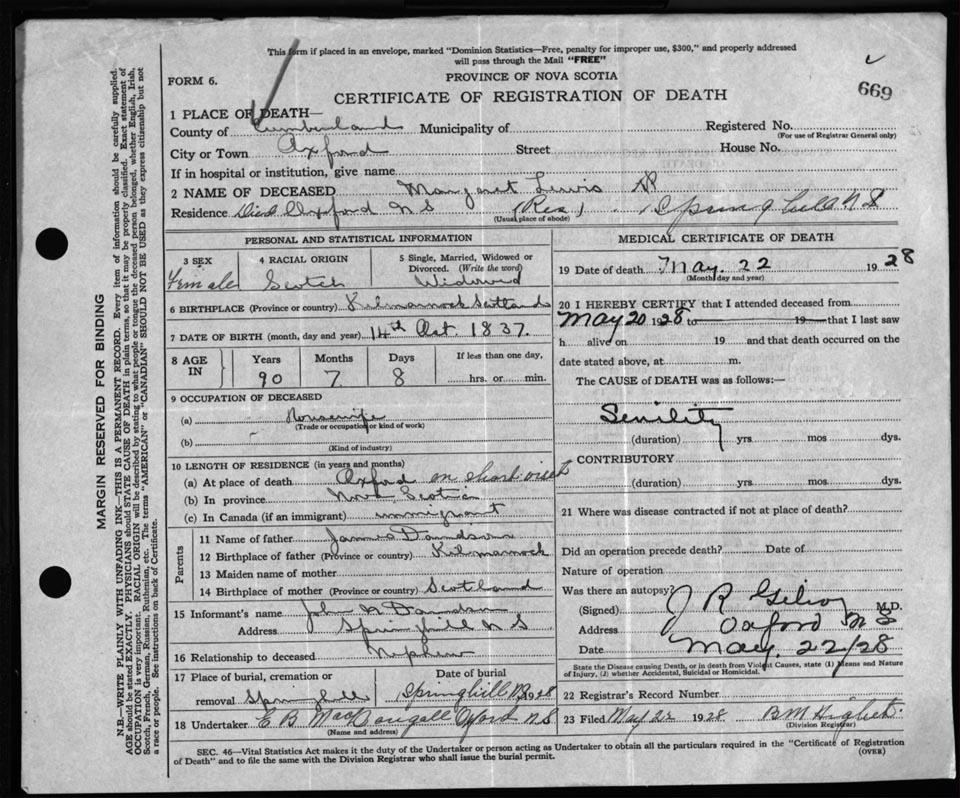 This form if placed in an envelope, marked "Dominion Statistics—Free, penalty for improper use, $300," and properly addressed
will pass through the Mail "FREE"
FORM 6.
PROVINCE OF NOVA SCOTIA
669
CERTIFICATE OF REGISTRATION OF DEATH
1 PLACE OF DEATH—
County of Cumberland Municipality of Registered No.
(For use of Registrar General only)
City or Town Oxford Street House No.
If in hospital or institution, give name
2 NAME OF DECEASED Margaret Lewis
Residence Died Oxford N S (Res) Springhill N S
(Usual place of abode)
PERSONAL AND STATISTICAL INFORMATION
3 SEX
Female
4 RACIAL ORIGIN
Scotch
5 Single, Married, Widowed or
Divorced. (Write the word)
Widowed
6 BIRTHPLACE (Province or country) Kilmarnock Scotland
7 DATE OF BIRTH (month, day and year) 14th Oct. 1837.
8 AGE
IN
Years Months Days If less than one day,
90 7 8 hrs. or min.
9 OCCUPATION OF DECEASED
(a) Housewife
(Trade or occupation or kind of work)
(b)
(Kind of industry)
10 LENGTH OF RESIDENCE (in years and months)
(a) At place of death Oxford on short visit
(b) In province Nova Scotia
(c) In Canada (if an immigrant) immigrant
Parents
11 Name of father James Davidson
12 Birthplace of father (Province or country) Kilmarnock
13 Maiden name of mother
14 Birthplace of mother (Province or country) Scotland
15 Informant's name John N Davidson
Address Springhill N S
16 Relationship to deceased Nephew
17 Place of burial, cremation or
removal Springhill
Date of burial
Springhill 1928
18 Undertaker E B MacDougall Oxford N S
(Name and address)
MEDICAL CERTIFICATE OF DEATH
19 Date of death May. 22 1928
(Month day and year)
20 I HEREBY CERTIFY that I attended deceased from
May 20 1928 to 19 that I last saw
h alive on 19 and that death occurred on the
date stated above, at m.
The CAUSE of DEATH was as follows:—
Senility
(duration) yrs. mos dys.
CONTRIBUTORY
(duration) yrs. mos. dys.
21 Where was disease contracted if not at place of death?
Did an operation precede death? Date of
Nature of operation
Was there an autopsy?
(Signed) J R Gilroy M.D.
Address Oxford N S
Date May 22/28
State the Disease causing Death, or in death from Violent Causes, state (1) Means and Nature
of Injury, (2) whether Accidental, Suicidal or Homicidal.
22 Registrar's Record Number
23 Filed May 22 1928 B M
(Division Registrar)
SEC. 46—Vital Statistics Act makes it the duty of the Undertaker or person acting as Undertaker to obtain all the particulars required in the "Certificate of Registration
of Death" and to file the same with the Division Registrar who shall issue the burial permit.
(OVER)
MARGIN RESERVED FOR BINDING
N.B.—WRITE PLAINLY WITH UNFADING INK—THIS IS A PERMANENT RECORD. Every item of information should be carefully supplied.
AGE should be stated EXACTLY. PHYSICIANS should STATE CAUSE OF DEATH in plain terms, so that it may be properly classified. Exact statement of
OCCUPATION is very important. RACIAL ORIGIN will be described by stating to what people or tongue the deceased person belonged, whether English, Irish,
Scotch, French, German, Russian, Ruthenian, etc. The terms "AMERICAN" or "CANADIAN" SHOULD NOT BE USED as they express citizenship but not
a race or people. See instructions on back of Certificate.